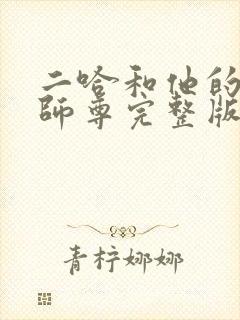 二哈和他的
師尊完整版
青柠娜娜